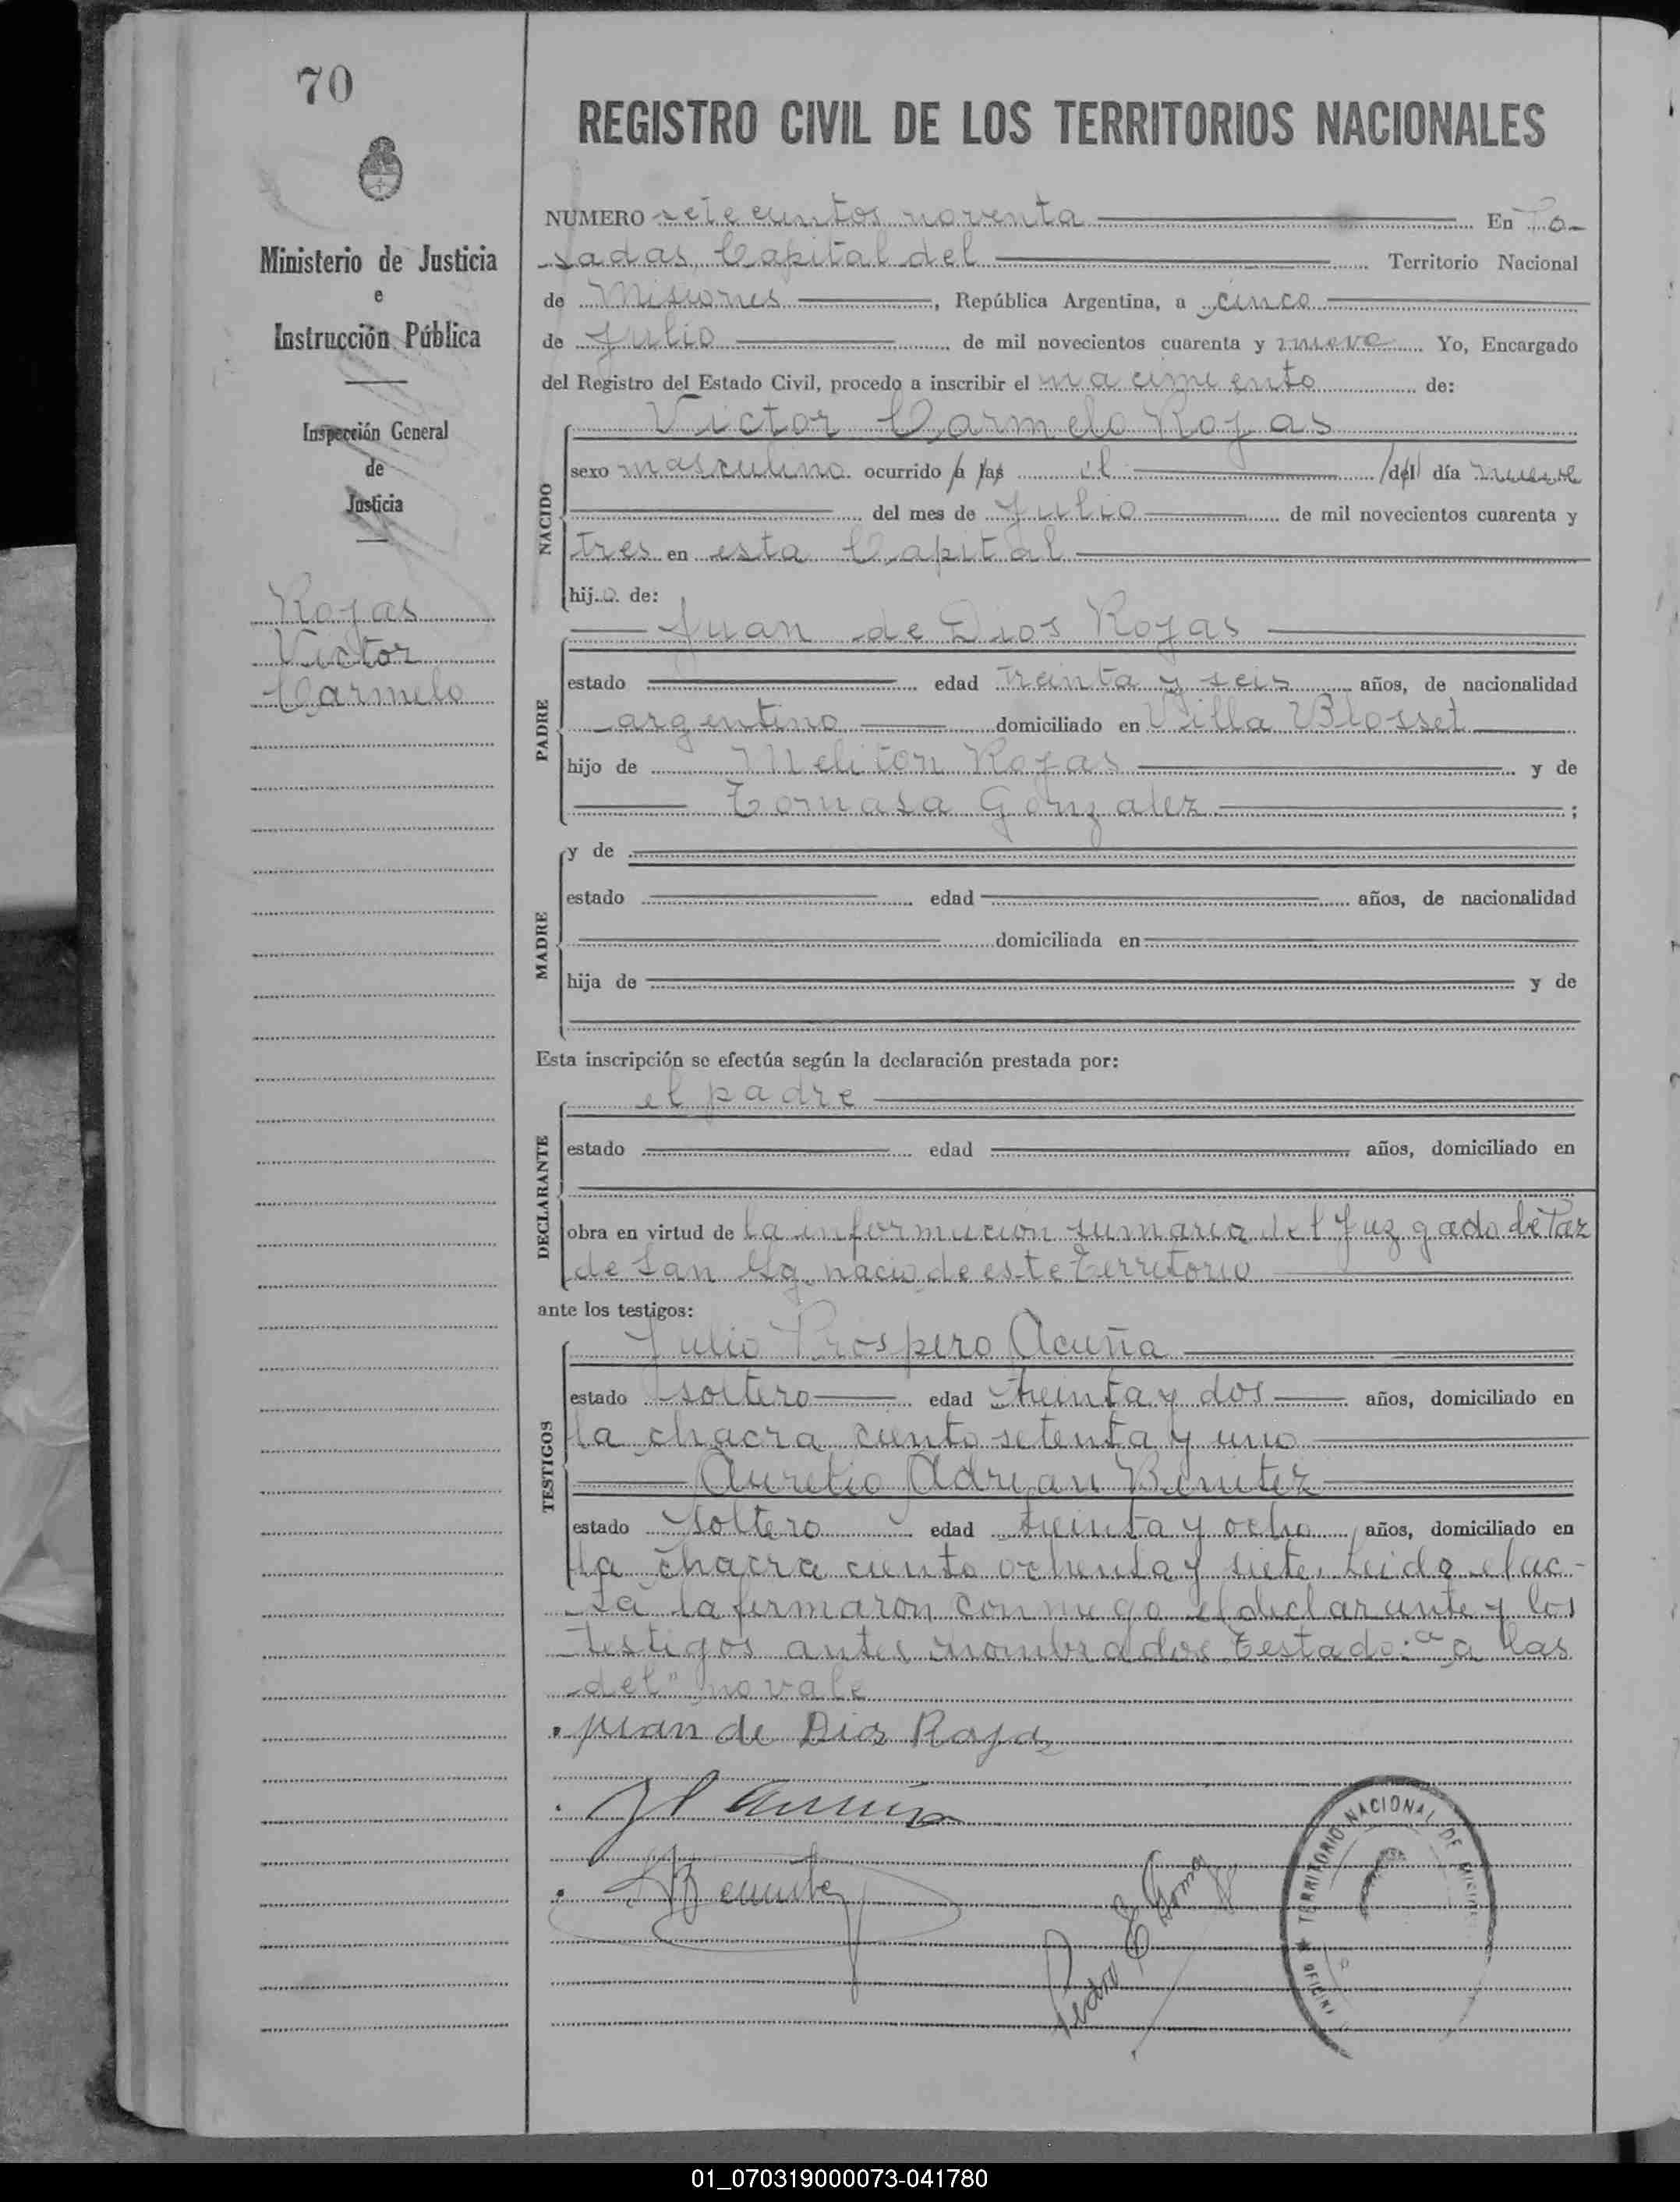 70
REGISTRO CIVIL DE LOS TERRITORIOS NACIONALES
Ministerio de Justicia
e
Instrucción Pública
Inspección General
de
Justicia
Rojas
Victor
Carmelo
NUMERO setecientos noventa En Po-
sadas, Capital del Territorio Nacional
de Misiones, República Argentina, a cinco
de Julio de mil novecientos cuarenta y nueve Yo, Encargado
del Registro del Estado Civil, procedo a inscribir el nacimiento de:
NACIDO
Victor Carmelo Rojas
sexo masculino ocurrido a las el del día nueve
del mes de Julio de mil novecientos cuarenta y
tres en esta Capital
hijo de:
PADRE
Juan de Dios Rojas
estado edad treinta y seis años, de nacionalidad
argentino domiciliado en Villa Blosset
hijo de Meliton Rojas y de
Tomasa Gonzalez ;
MADRE
y de
estado edad años, de nacionalidad
domiciliada en
hija de y de
Esta inscripción se efectúa según la declaración prestada por:
DECLARANTE
el padre
estado edad años, domiciliado en
obra en virtud de la información sumaria del Juzgado de Paz
de San Ignacio de este Territorio
ante los testigos:
TESTIGOS
Julio Prospero Acuña
estado soltero edad treinta y dos años, domiciliado en
la chacra ciento setenta y uno
Aurelio Adrian Benitez
estado soltero edad treinta y ocho años, domiciliado en
la chacra ciento ochenta y siete. Leida el ac-
ta la firmaron conmigo el declarante y los
testigos antes nombrados. Testado: "a las
del" no vale
Juan de Dios Rojas
J P Acuña
A Benitez
Pedro E Gomez
TERRITORIO NACIONAL DE
★ OFICINA
01_070319000073-041780